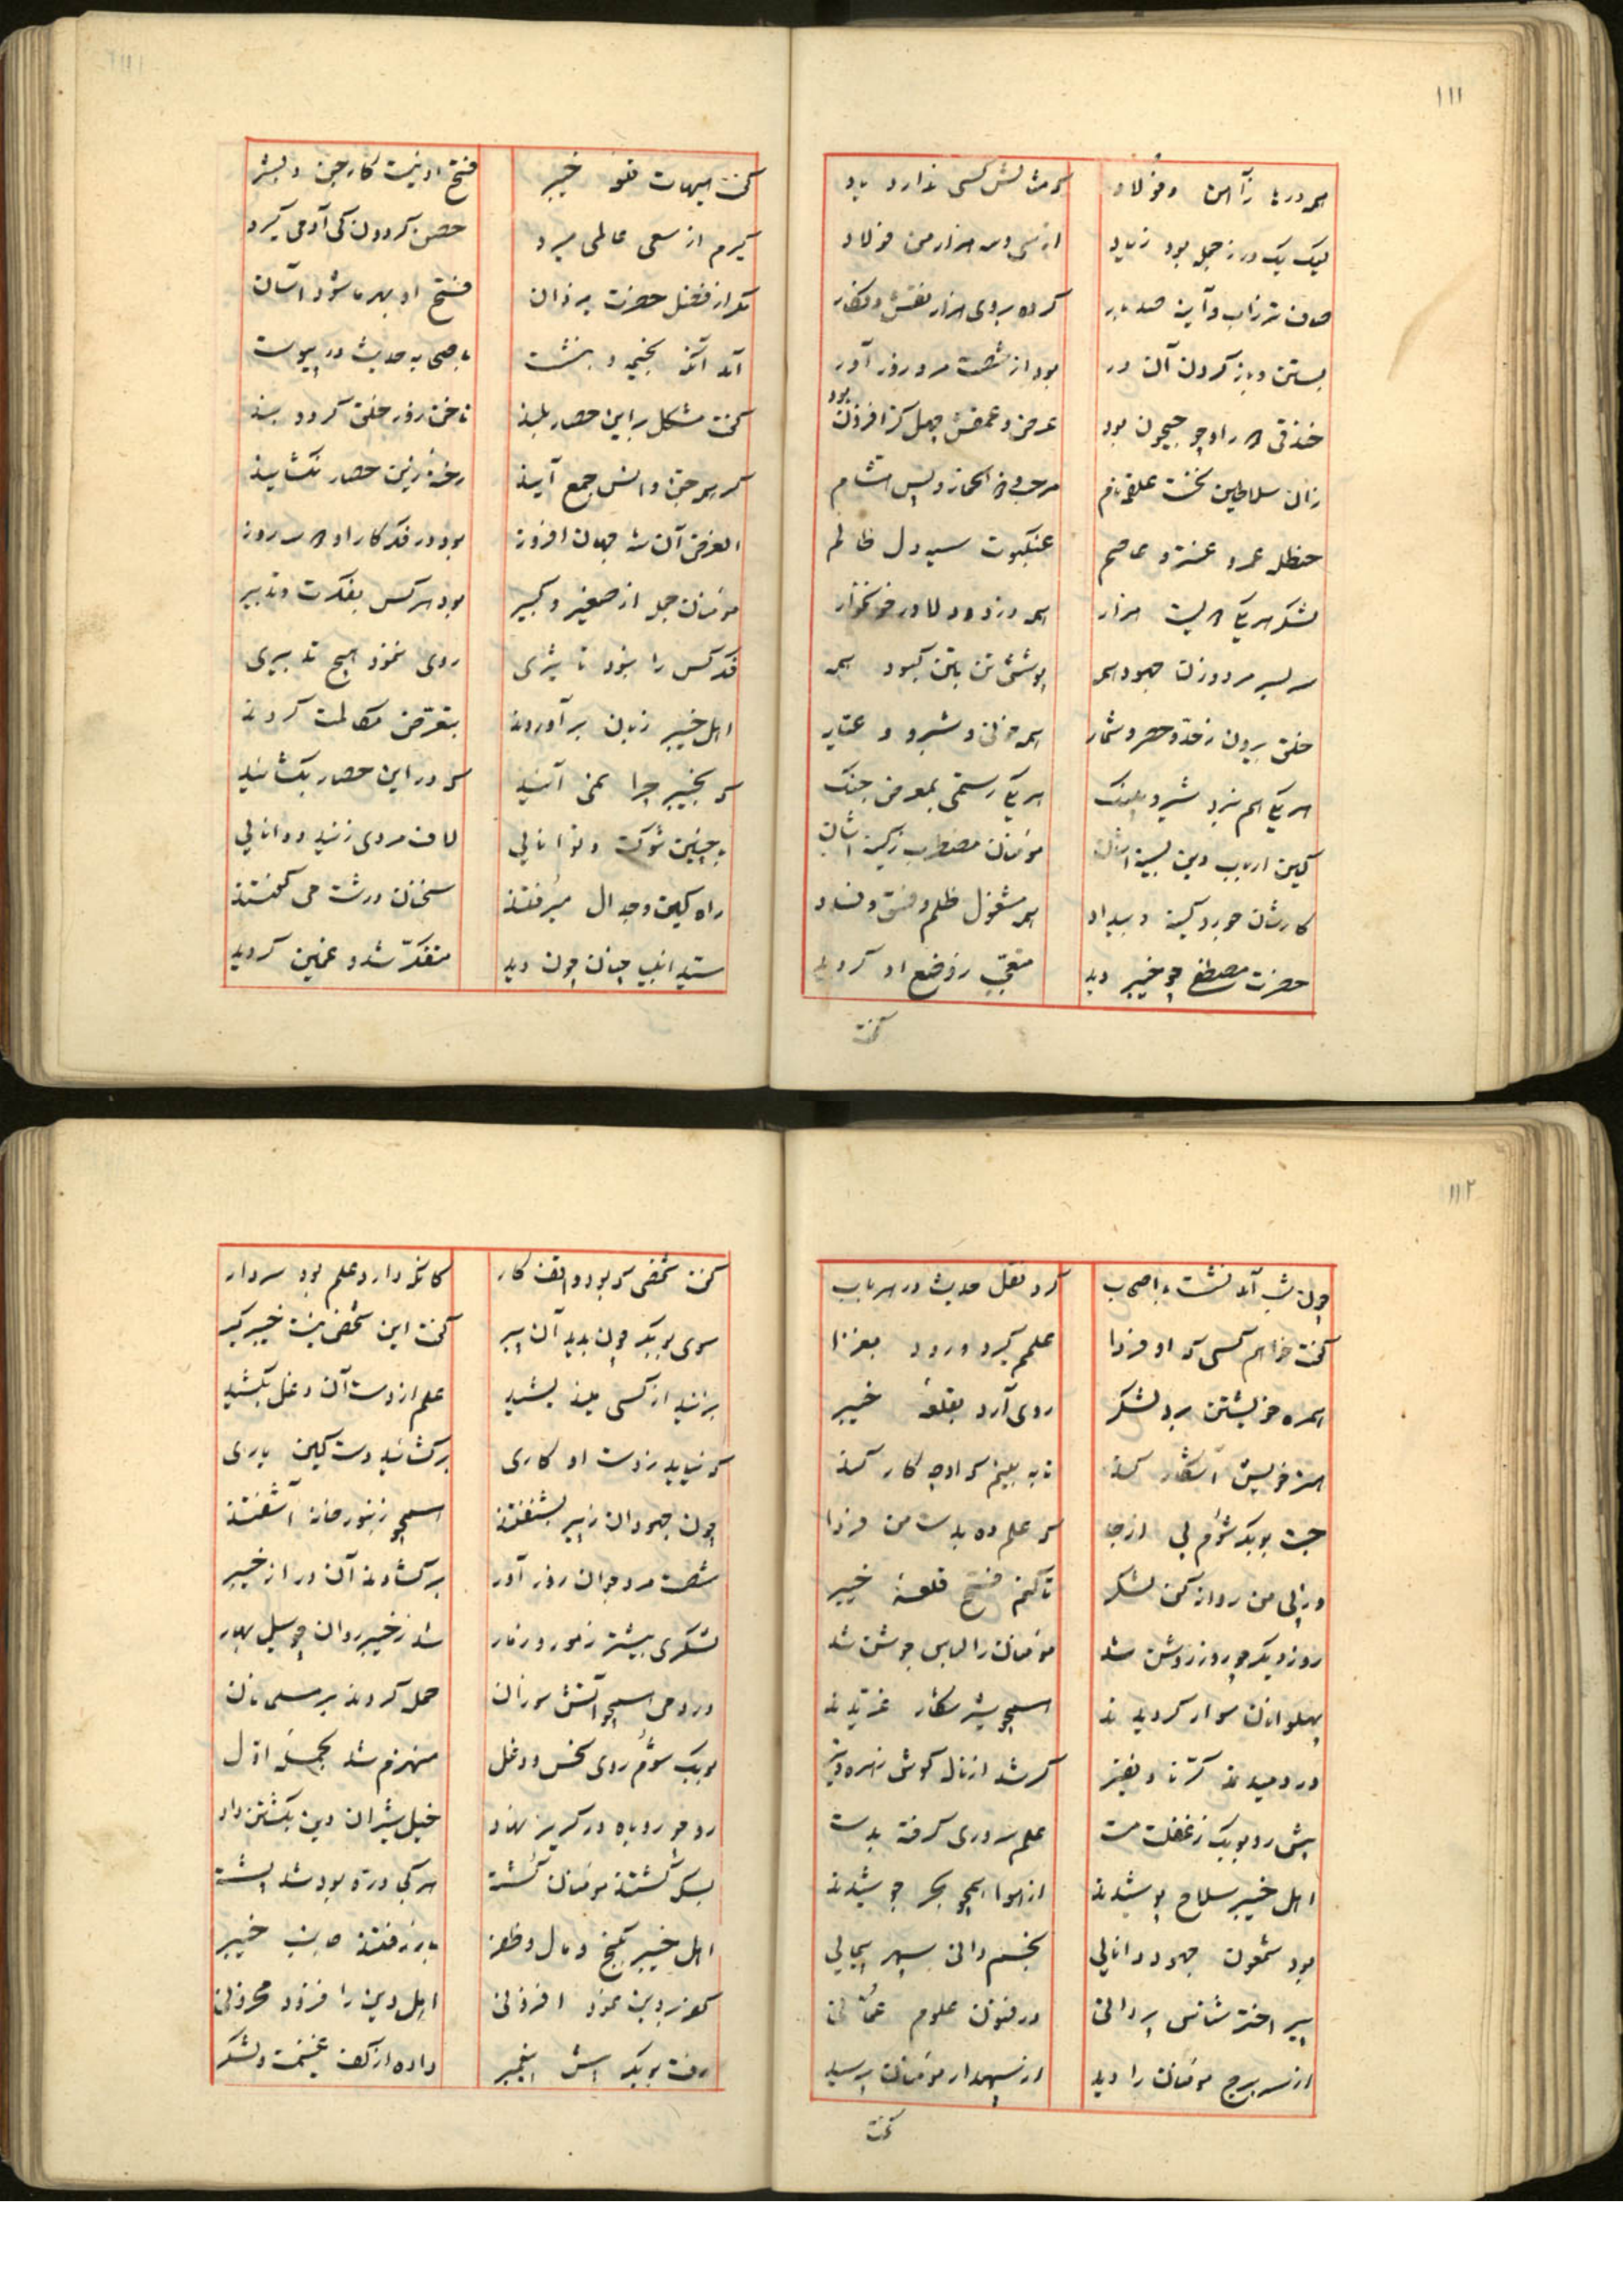 ۱۱۱
همه درها ز آهن و فولاد که مثالش کسی ندارد یاد
لیک یک در ز جمله بود زیاد از سی و سه هزار من فولاد
صاف تر ز آب و آینه صد بار کرده بر وی هزار نقش و نگار
بستن و باز کردن آن در بود از شصت مرد زور آور
خندقی که در او چو جیحون بود عرض و عمقش چهل گز افزون بود
زان سلاطین نخست علقه نام مرحب و
حنظل عمرو عنتر و عاصم عنکبوت سیه دل ظالم
لشکر هر یکی هزار همه دزد و دلاور خونخوار
سر بسر مرد و زن جهود همه پوشش تن بتن کبود همه
خلق بیرون ز حد و حصر و شمار همه خونی و شبرو و عیار
هر یکی هم نبرد شیر و پلنگ هر یکی رستمی بمعرض جنگ
کین ارباب دین بسینهٔ شان مؤمنان مضطرب ز کینهٔ شان
کارشان جور و کینه و بیداد همه مشغول ظلم و فسق و فساد
حضرت مصطفی چو خیبر دید متعجب ز وضع او گردید
گفت
گفت هیهات قلعهٔ خیبر فتح او نیست کار جن و بشر
گیرم از سعی عالمی میرد حصن گردون کی آدمی گیرد
مگر از فضل حضرت یزدان فتح او بهر ما شود آسان
آمد آنگه بخیمه و بنشست با صحابه حدیث در پیوست
گفت مشکل بر این حصار بلند ناخن زور خلق گردد بند
گر همه جن و انس جمع آیند رخنه زین حصار نگشایند
الغرض آن شه جهان افروز بود در فکر کار او سه روز
مؤمنان جمله از صغیر و کبیر بود هر کس بفکرت و تدبیر
فکر کس را نبود تأثیری روی ننمود هیچ تدبیری
اهل خیبر زبان برآوردند بتعرض مکالمت کردند
که بخیبر چرا نمی آئید که در این حصار بگشائید
به چنین شوکت و توانائی لاف مردی زنید و دانائی
راه کین و جدال میرفتند سخنان درشت می گفتند
سید انبیا چنان چون دید متفکر شد و غمین گردید
۱۱۲
چون شب آمد نشست با اصحاب کرد نقل حدیث در هر باب
گفت خواهم کسی که او فردا علم گیرد و رود بغزا
همره خویشتن برد لشکر روی آرد بقلعهٔ خیبر
هنر خویش آشکار کند تا به بینم که او چه کار کند
جست بوبکر شوم پی از جا که علم ده بدست من فردا
در پی من روانه کن لشکر تا کنم فتح قلعهٔ خیبر
روز دیگر چو روز روشن شد مؤمنان را لباس جوشن شد
پهلوانان سوار گردیدند همچو شیر شکار غریدند
در دمیدند کرنا و نفیر کر شد از ناله گوش زهره و تیر
پیش رو بوبکر ز غفلت مست علم سروری گرفته بدست
اهل خیبر سلاح پوشیدند از هوا همچو بحر جوشیدند
بود شمعون جهود دانائی بخم دانی سپهر پیمائی
پیر اختر شناس پر دانی در فنون علوم عمانی
از سر برج مؤمنان را دید از سپهدار مؤمنان پرسید
گفت
گفت شخصی که بود واقف کار کانکه دارد علم بود سردار
سوی بوبکر چون بدید آن پیر گفت این شخص نیست خیبر گیر
بزنید از کسی میندیشید علم از دست آن دغل بکشید
که نیاید ز دست او کاری برگشائید دست کین باری
چون جهودان ز پیر بشنفتند همچو زنبور خانه آشفتند
شصت مرد جوان زور آور برگشادند آن در از خیبر
لشکری بیشتر ز مور و ز مار شد ز خیبر روان چو سیل بهار
در دمی همچو آتش سوزان حمله کردند بر مسلمانان
بوبکر شوم روی نحس و دغل منهزم شد بحملهٔ اول
رو چو روباه در گریز نهاد خیل شیران دین بکشتن داد
بسکه گشتند مؤمنان کشته هر کجا دره بود شد پشته
اهل خیبر بگنج و مال و ظفر باز رفتند جانب خیبر
کفر بر دین نمود افزونی اهل دین را فزود محزونی
رفت بوبکر پیش پیغمبر داده از کف غنیمت و لشکر